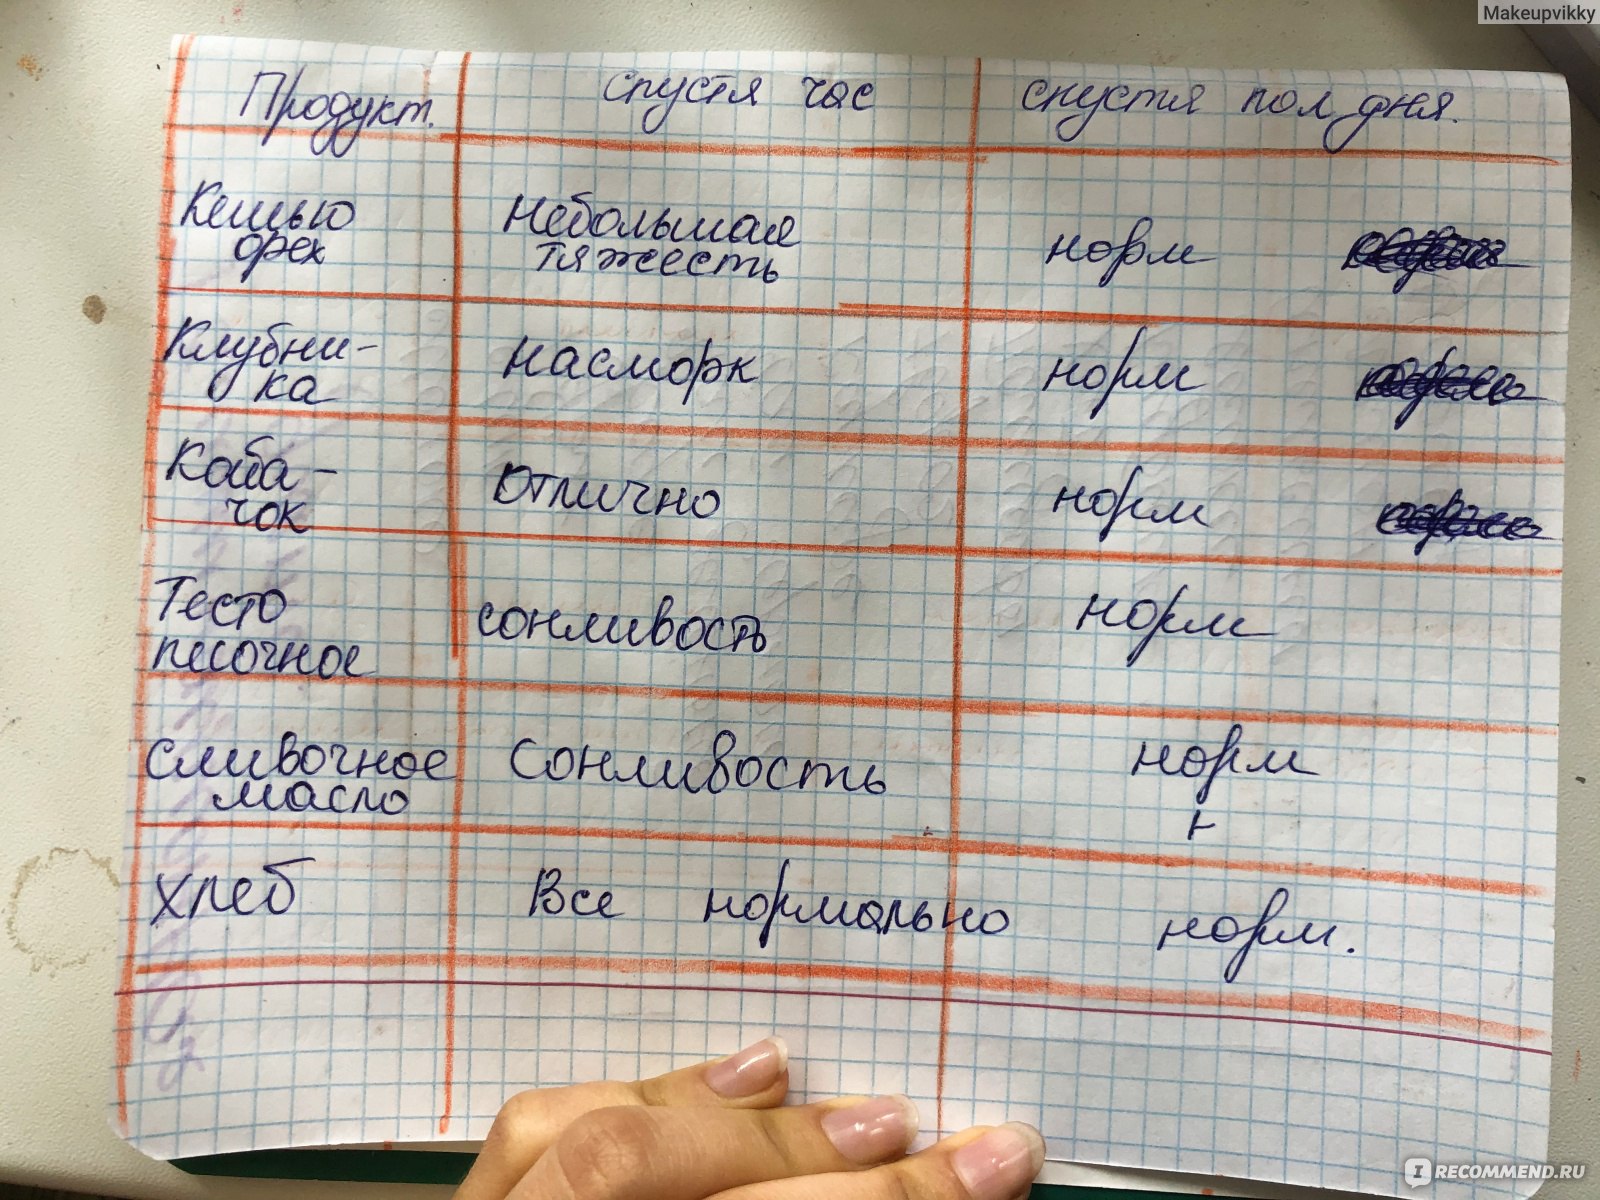 Makeupvikky
Продукт. спустя час спустя пол дня.
Кешью
орех
Небольшая
тяжесть
норм
Клубни-
ка
насморк
норм
Каба-
чок
Отлично
норм
Тесто
песочное
сонливость
норм
Сливочное
масло
Сонливость
норм
н
Хлеб
Все нормально
норм.
IRECOMMEND.RU